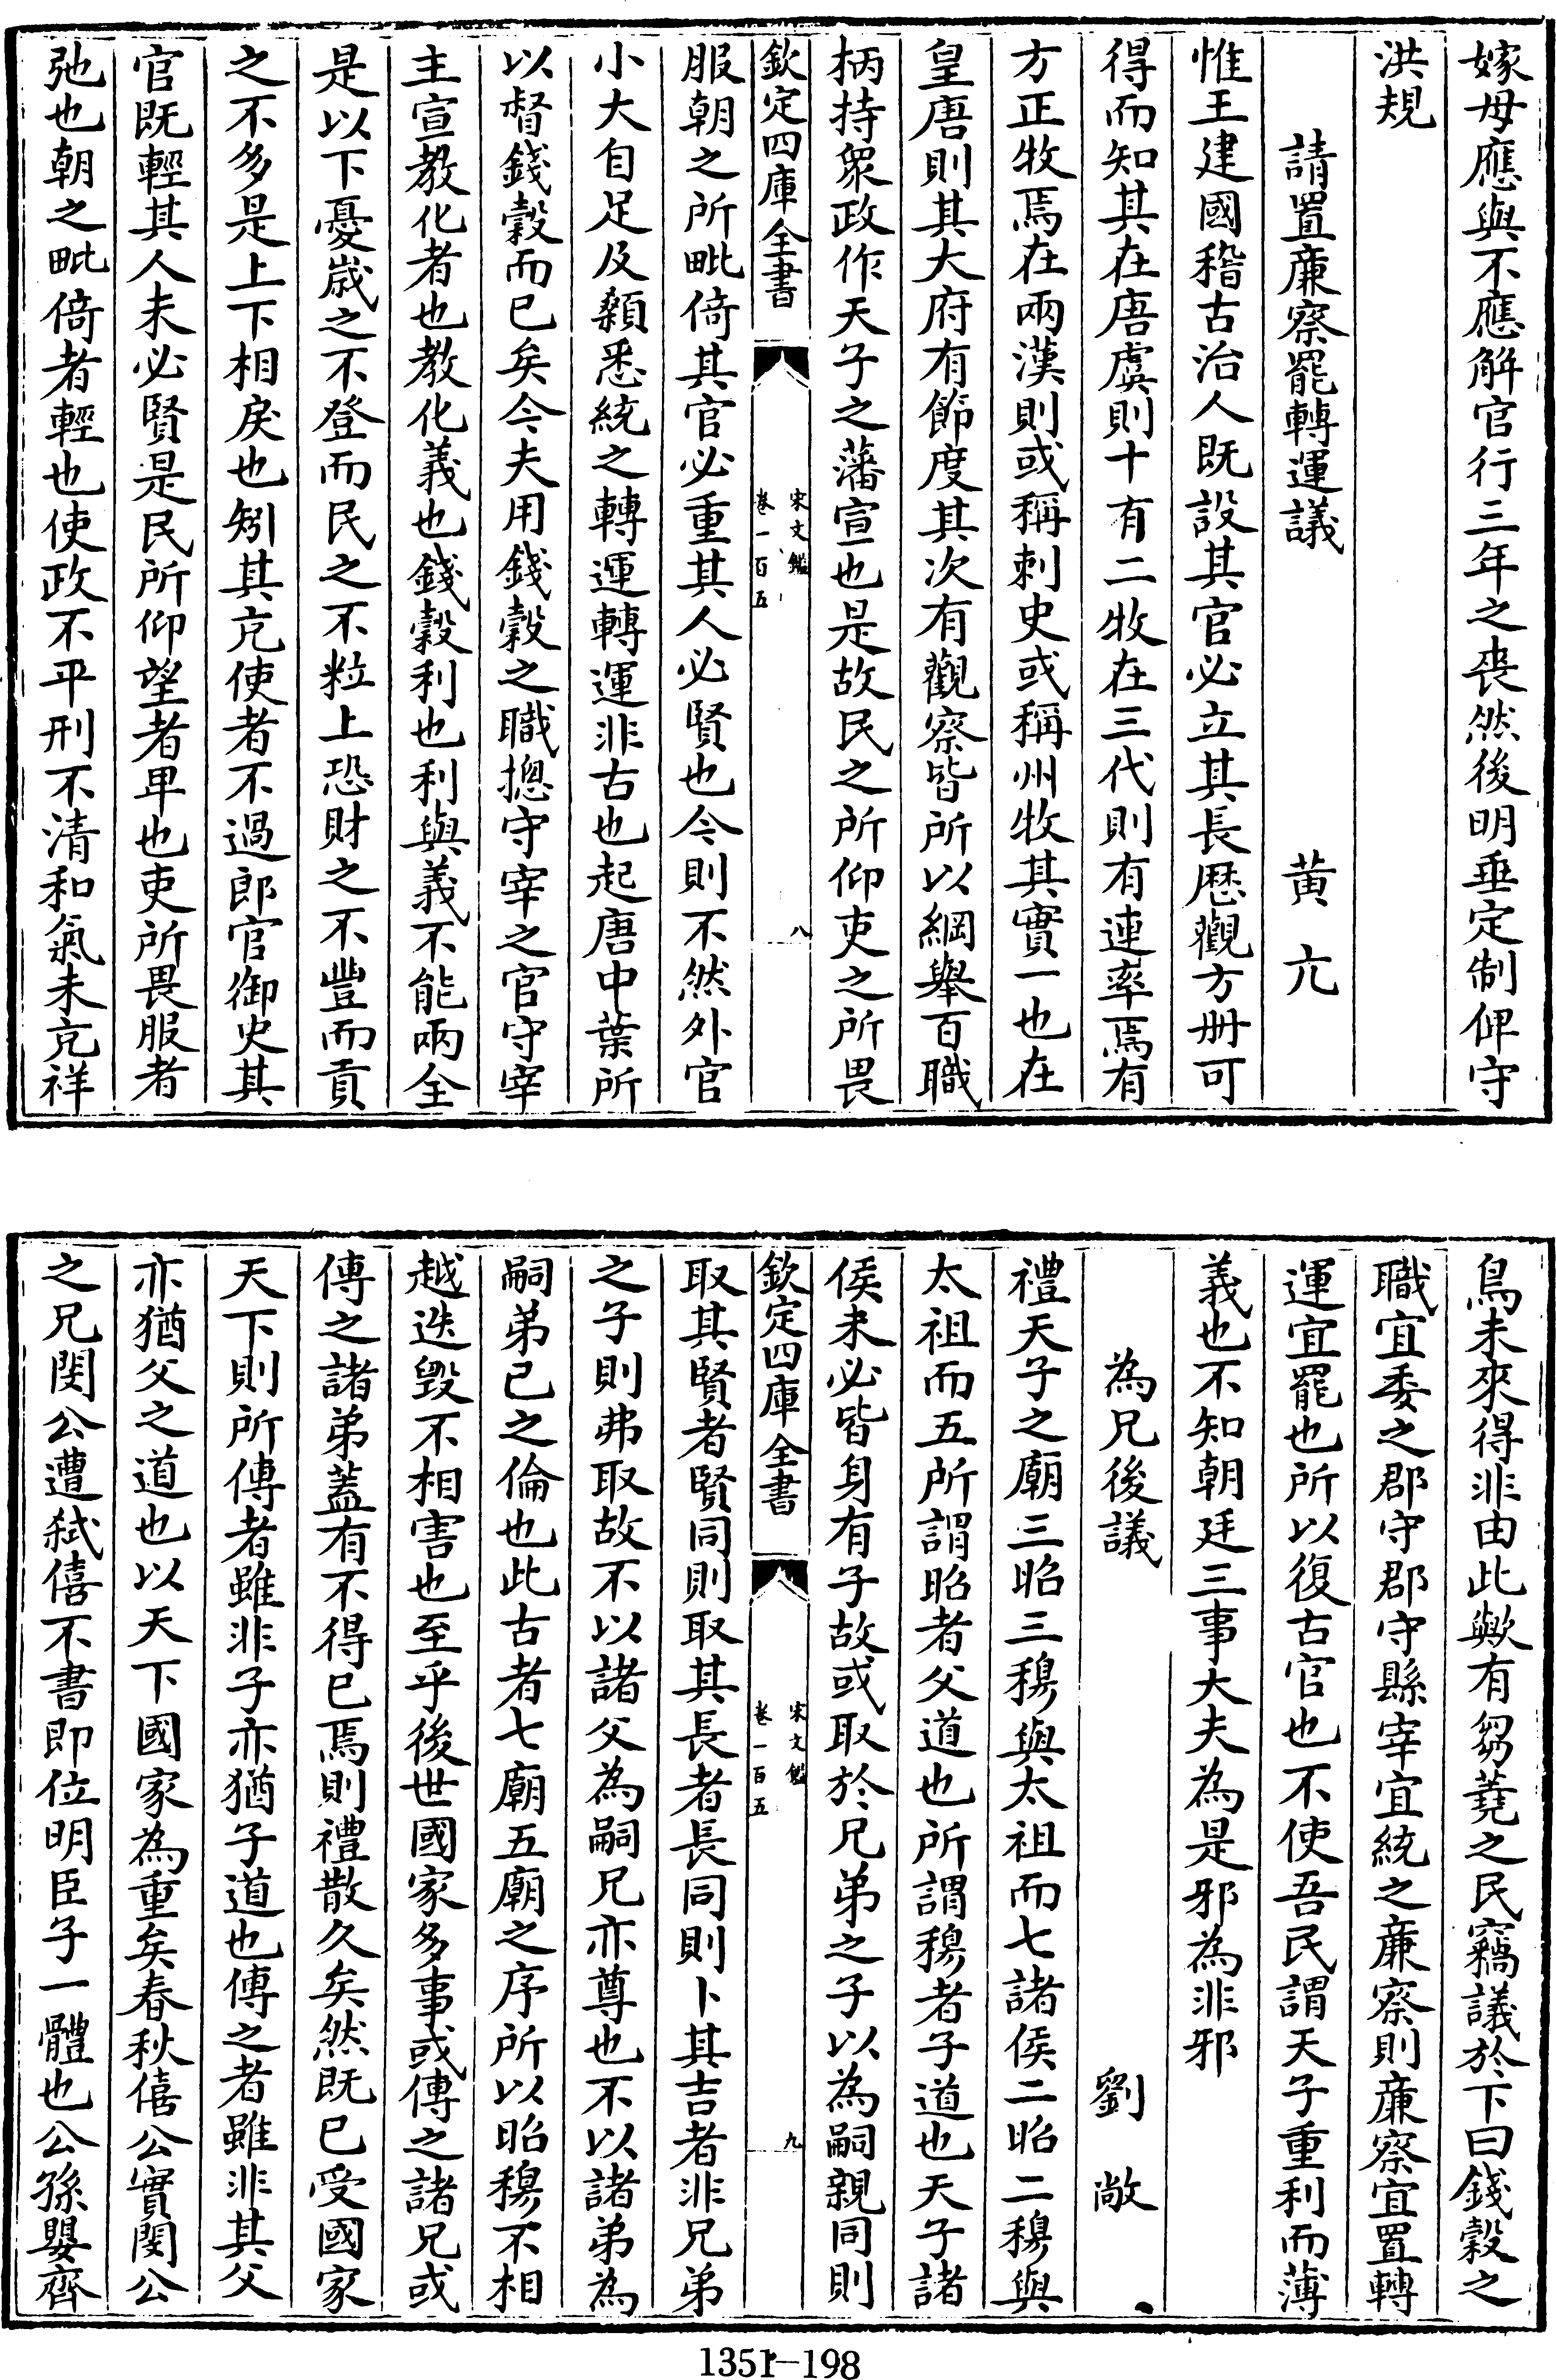 嫁母應與不應解官行三年之喪然後明垂定制俾守
洪規
請置廉察罷轉運議
黄亢
惟王建國稽古治人既設其官必立其長歴觀方册可
得而知其在唐虞則十有二牧在三代則有連率焉有
方正牧焉在兩漢則或稱刺史或稱州牧其實一也在
皇唐則其大府有節度其次有觀察皆所以綱舉百職
柄持衆政作天子之藩宣也是故民之所仰吏之所畏
欽定四庫全書
宋文鑑
卷一百五
八
服朝之所毗倚其官必重其人必賢也今則不然外官
小大自足及顙悉統之轉運轉運非古也起唐中葉所
以督錢穀而已矣今夫用錢穀之職揔守宰之官守宰
主宣教化者也教化義也錢穀利也利與義不能兩全
是以下憂歳之不登而民之不粒上恐財之不豐而貢
之不多是上下相戾也矧其充使者不過郎官御史其
官既輕其人未必賢是民所仰望者卑也吏所畏服者
弛也朝之毗倚者輕也使政不平刑不清和氣未充祥
鳥未來得非由此歟有芻蕘之民竊議於下曰錢穀之
職宜委之郡守郡守縣宰宜統之廉察則廉察宜置轉
運宜罷也所以復古官也不使吾民謂天子重利而薄
義也不知朝廷三事大夫為是邪為非邪
為兄後議
劉敞
禮天子之廟三昭三穆與太祖而七諸侯二昭二穆與
太祖而五所謂昭者父道也所謂穆者子道也天子諸
侯未必皆身有子故或取於兄弟之子以為嗣親同則
欽定四庫全書
宋文鑑
卷一百五
九
取其賢者賢同則取其長者長同則卜其吉者非兄弟
之子則弗取故不以諸父為嗣兄亦尊也不以諸弟為
嗣弟已之倫也此古者七廟五廟之序所以昭穆不相
越迭毁不相害也至乎後世國家多事或傳之諸兄或
傳之諸弟蓋有不得已焉則禮散久矣然既已受國家
天下則所傳者雖非子亦猶子道也傳之者雖非其父
亦猶父之道也以天下國家為重矣春秋僖公實閔公
之兄閔公遭弑僖不書即位明臣子一體也公孫嬰齊
1351-198